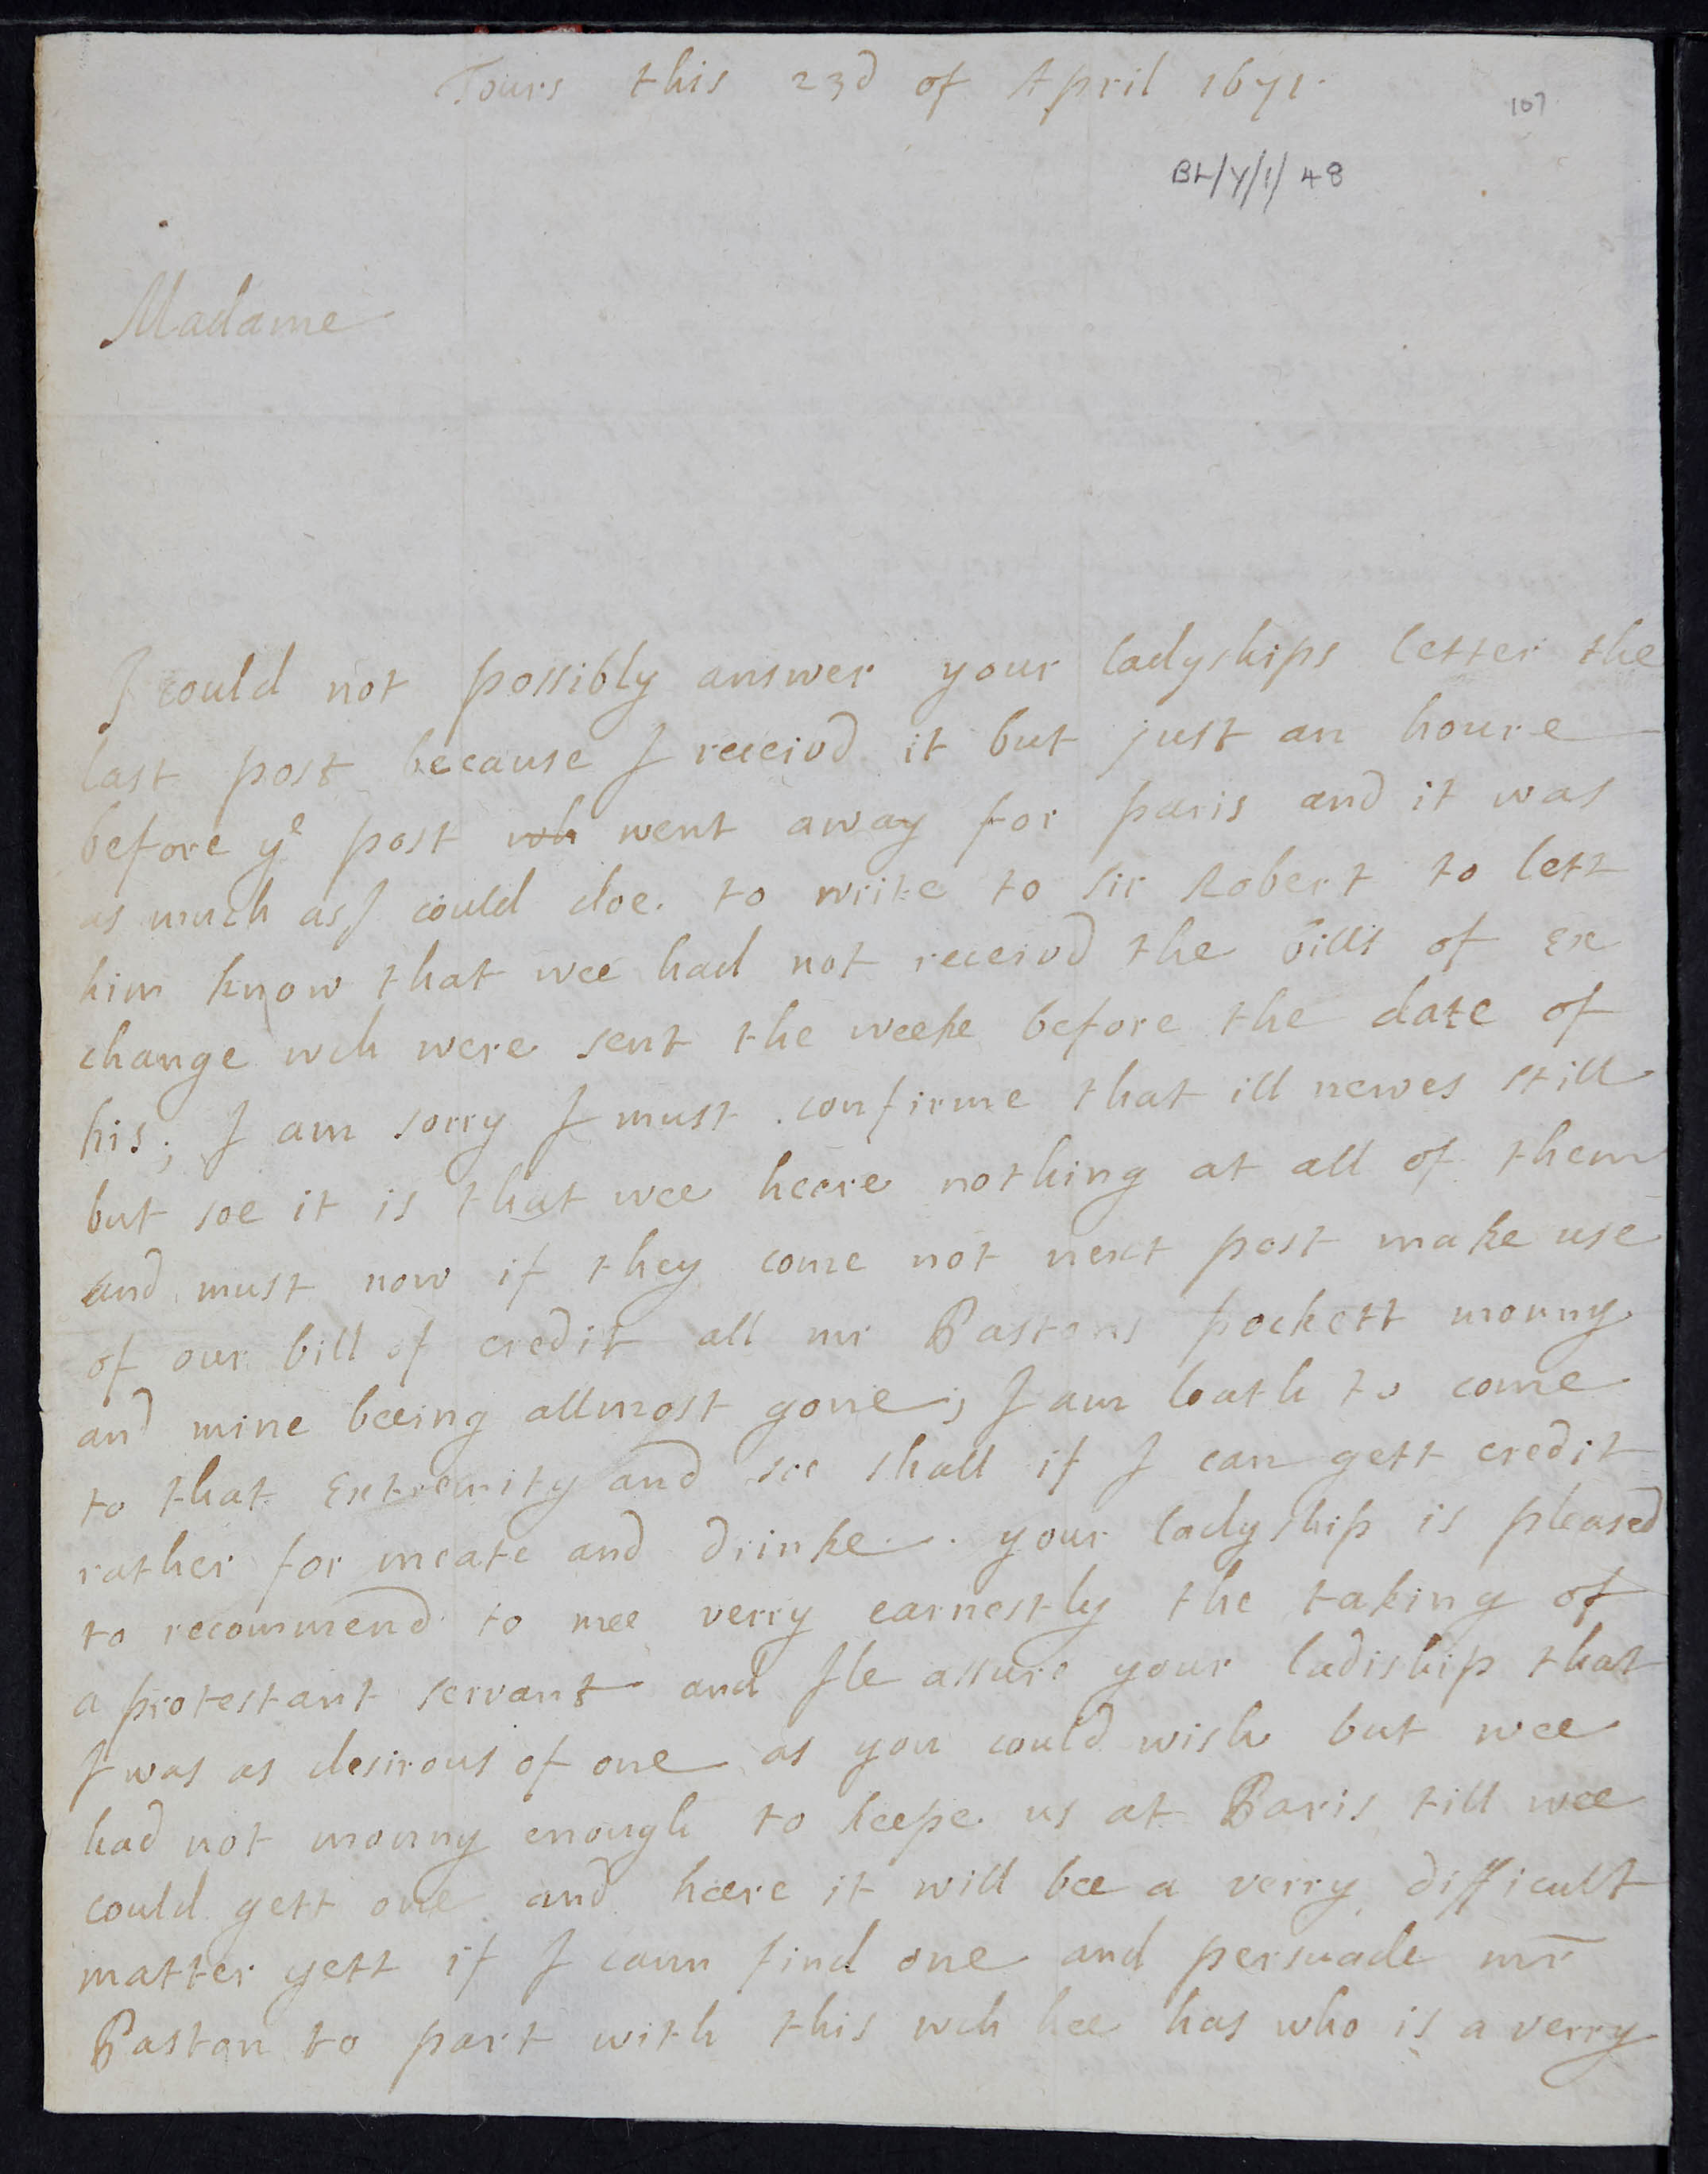 Tours this 23d of April 1671.
107
BL/Y/1/48
Madame
I could not possibly answer your ladyships letter the
last post because I receivd it but just an houre
before ye post wh went away for paris and it was
as much as I could doe. to write to sir Robert to lett
him know that wee had not receivd the bills of ex
change wch were sent the weeke before the date of
his; I am sorry I must confirme that ill newes still
but soe it is that wee heere nothing at all of them
and must now if they come not next post make use
of our bill of credit all mr Pastons pockett monny
and mine beeing allmost gone; I am loath to come
to that extremity and see shall if I can gett credit
rather for meate and drinke. your ladyship is pleased
to recommend to mee verry earnestly the taking of
a protestant servant and Ile assure your ladiship that
I was as desirous of one as you could wish but wee
had not monny enough to keepe us at Paris till wee
could gett one and heere it will bee a verry difficult
matter yett if I cann find one and persuade mr
Paston to part with this wch hee has who is a verry